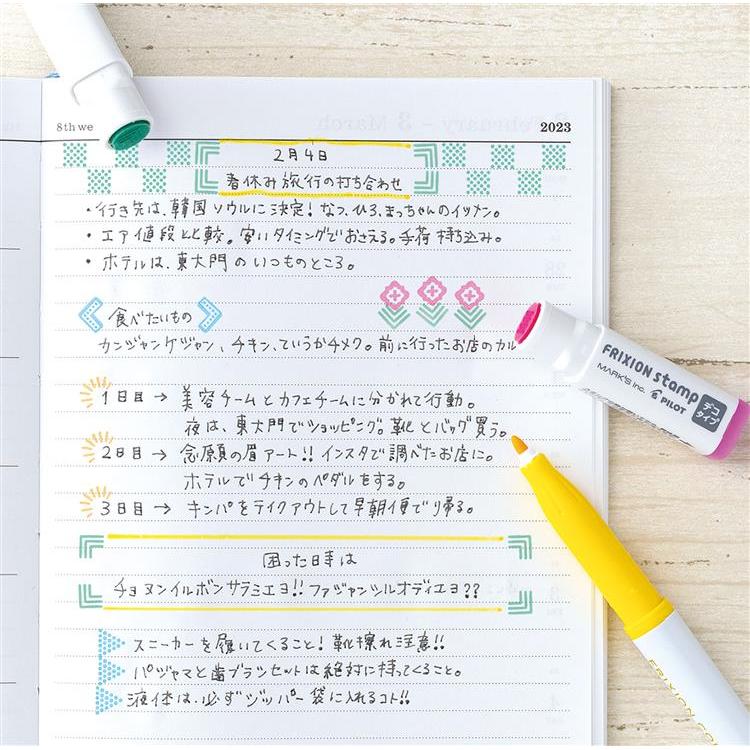 8th we
2023
2月4日
春休み旅行の打ち合わせ
・行き先は、韓国ソウルに決定！なつ、ひろ、まっちゃんのイツメン。
・エア値段比較。安いタイミングでおさえる。手荷持ち込み。
・ホテルは、東大門のいつものところ。
食べたいもの
カンジャンケジャン、チキン、ていうかチメク。前に行ったお店のカル
1日目→ 美容チームとカフェチームに分かれて行動。
夜は、東大門でショッピング。靴とバッグ買う。
2日目→ 念願の眉アート!! インスタで調べたお店に。
ホテルでチキンのペダルをする。
3日目→ キンパをテイクアウトして早朝便でり帰る。
困った日時は
チョヌンイルボンサラミエヨ!! ファジャンシルオディエヨ??
スニーカーを履いてくること！靴擦れ注意!!
パジャマと歯ブラシセットは絶対に持ってくること。
液体は、必ずジッパー袋に入れるコト!!
FRIXION stamp
MARK'S Inc. PILOT
デコタイプ
FRIXION CO